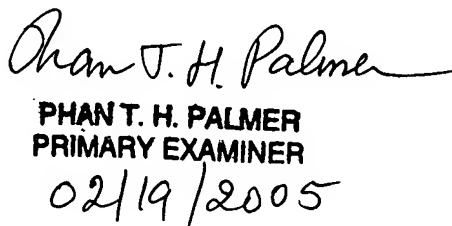 Phan T. H. Palmer
PHAN T. H. PALMER
PRIMARY EXAMINER
02/19/2005